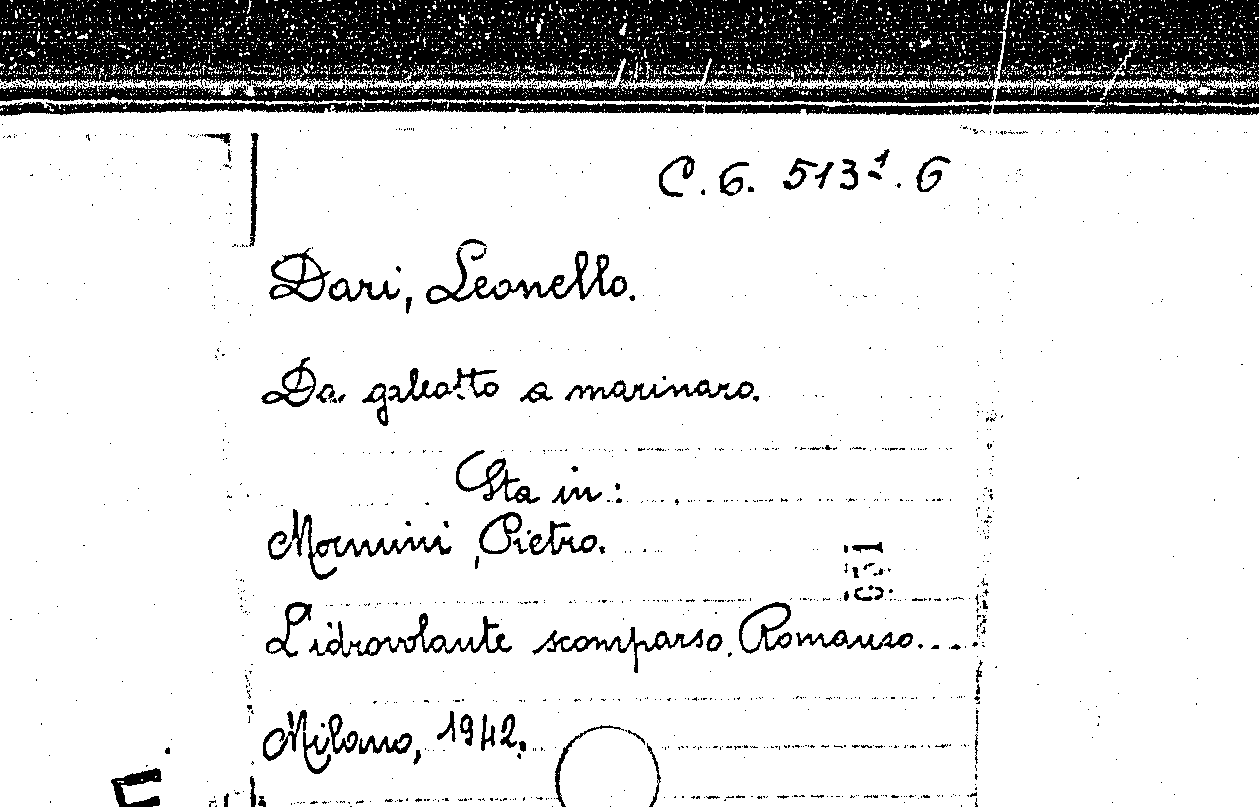 C. G. 513¹. G
Dari, Leonello.
Da galeotto a marinaro.
Sta in:
Mannini, Pietro.
L'idrovolante scomparso. Romanzo....
Milano, 1942.